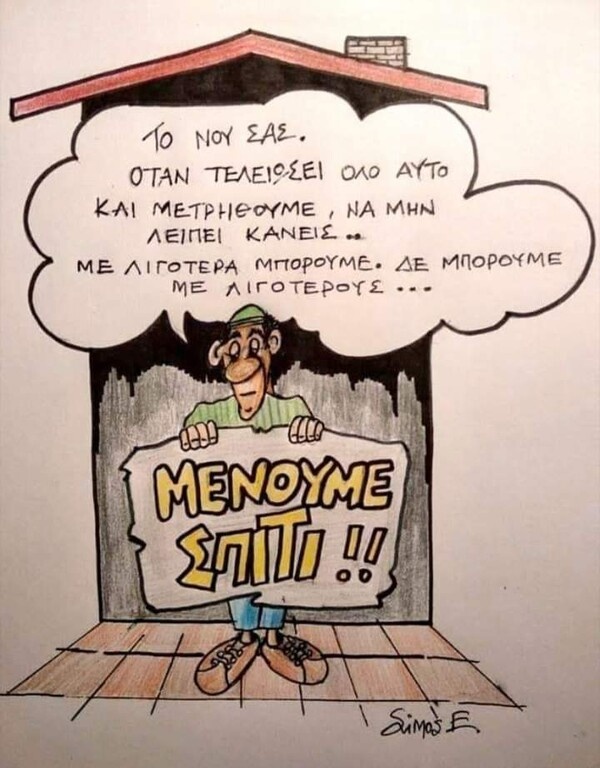 ΤΟ ΝΟΥ ΣΑΣ.
ΟΤΑΝ ΤΕΛΕΙΩΣΕΙ ΟΛΟ ΑΥΤΟ
ΚΑΙ ΜΕΤΡΗΘΟΥΜΕ, ΝΑ ΜΗΝ
ΛΕΙΠΕΙ ΚΑΝΕΙΣ..
ΜΕ ΛΙΓΟΤΕΡΑ ΜΠΟΡΟΥΜΕ. ΔΕ ΜΠΟΡΟΥΜΕ
ΜΕ ΛΙΓΟΤΕΡΟΥΣ...
ΜΕΝΟΥΜΕ
ΣΠΙΤΙ!!
Simos E.